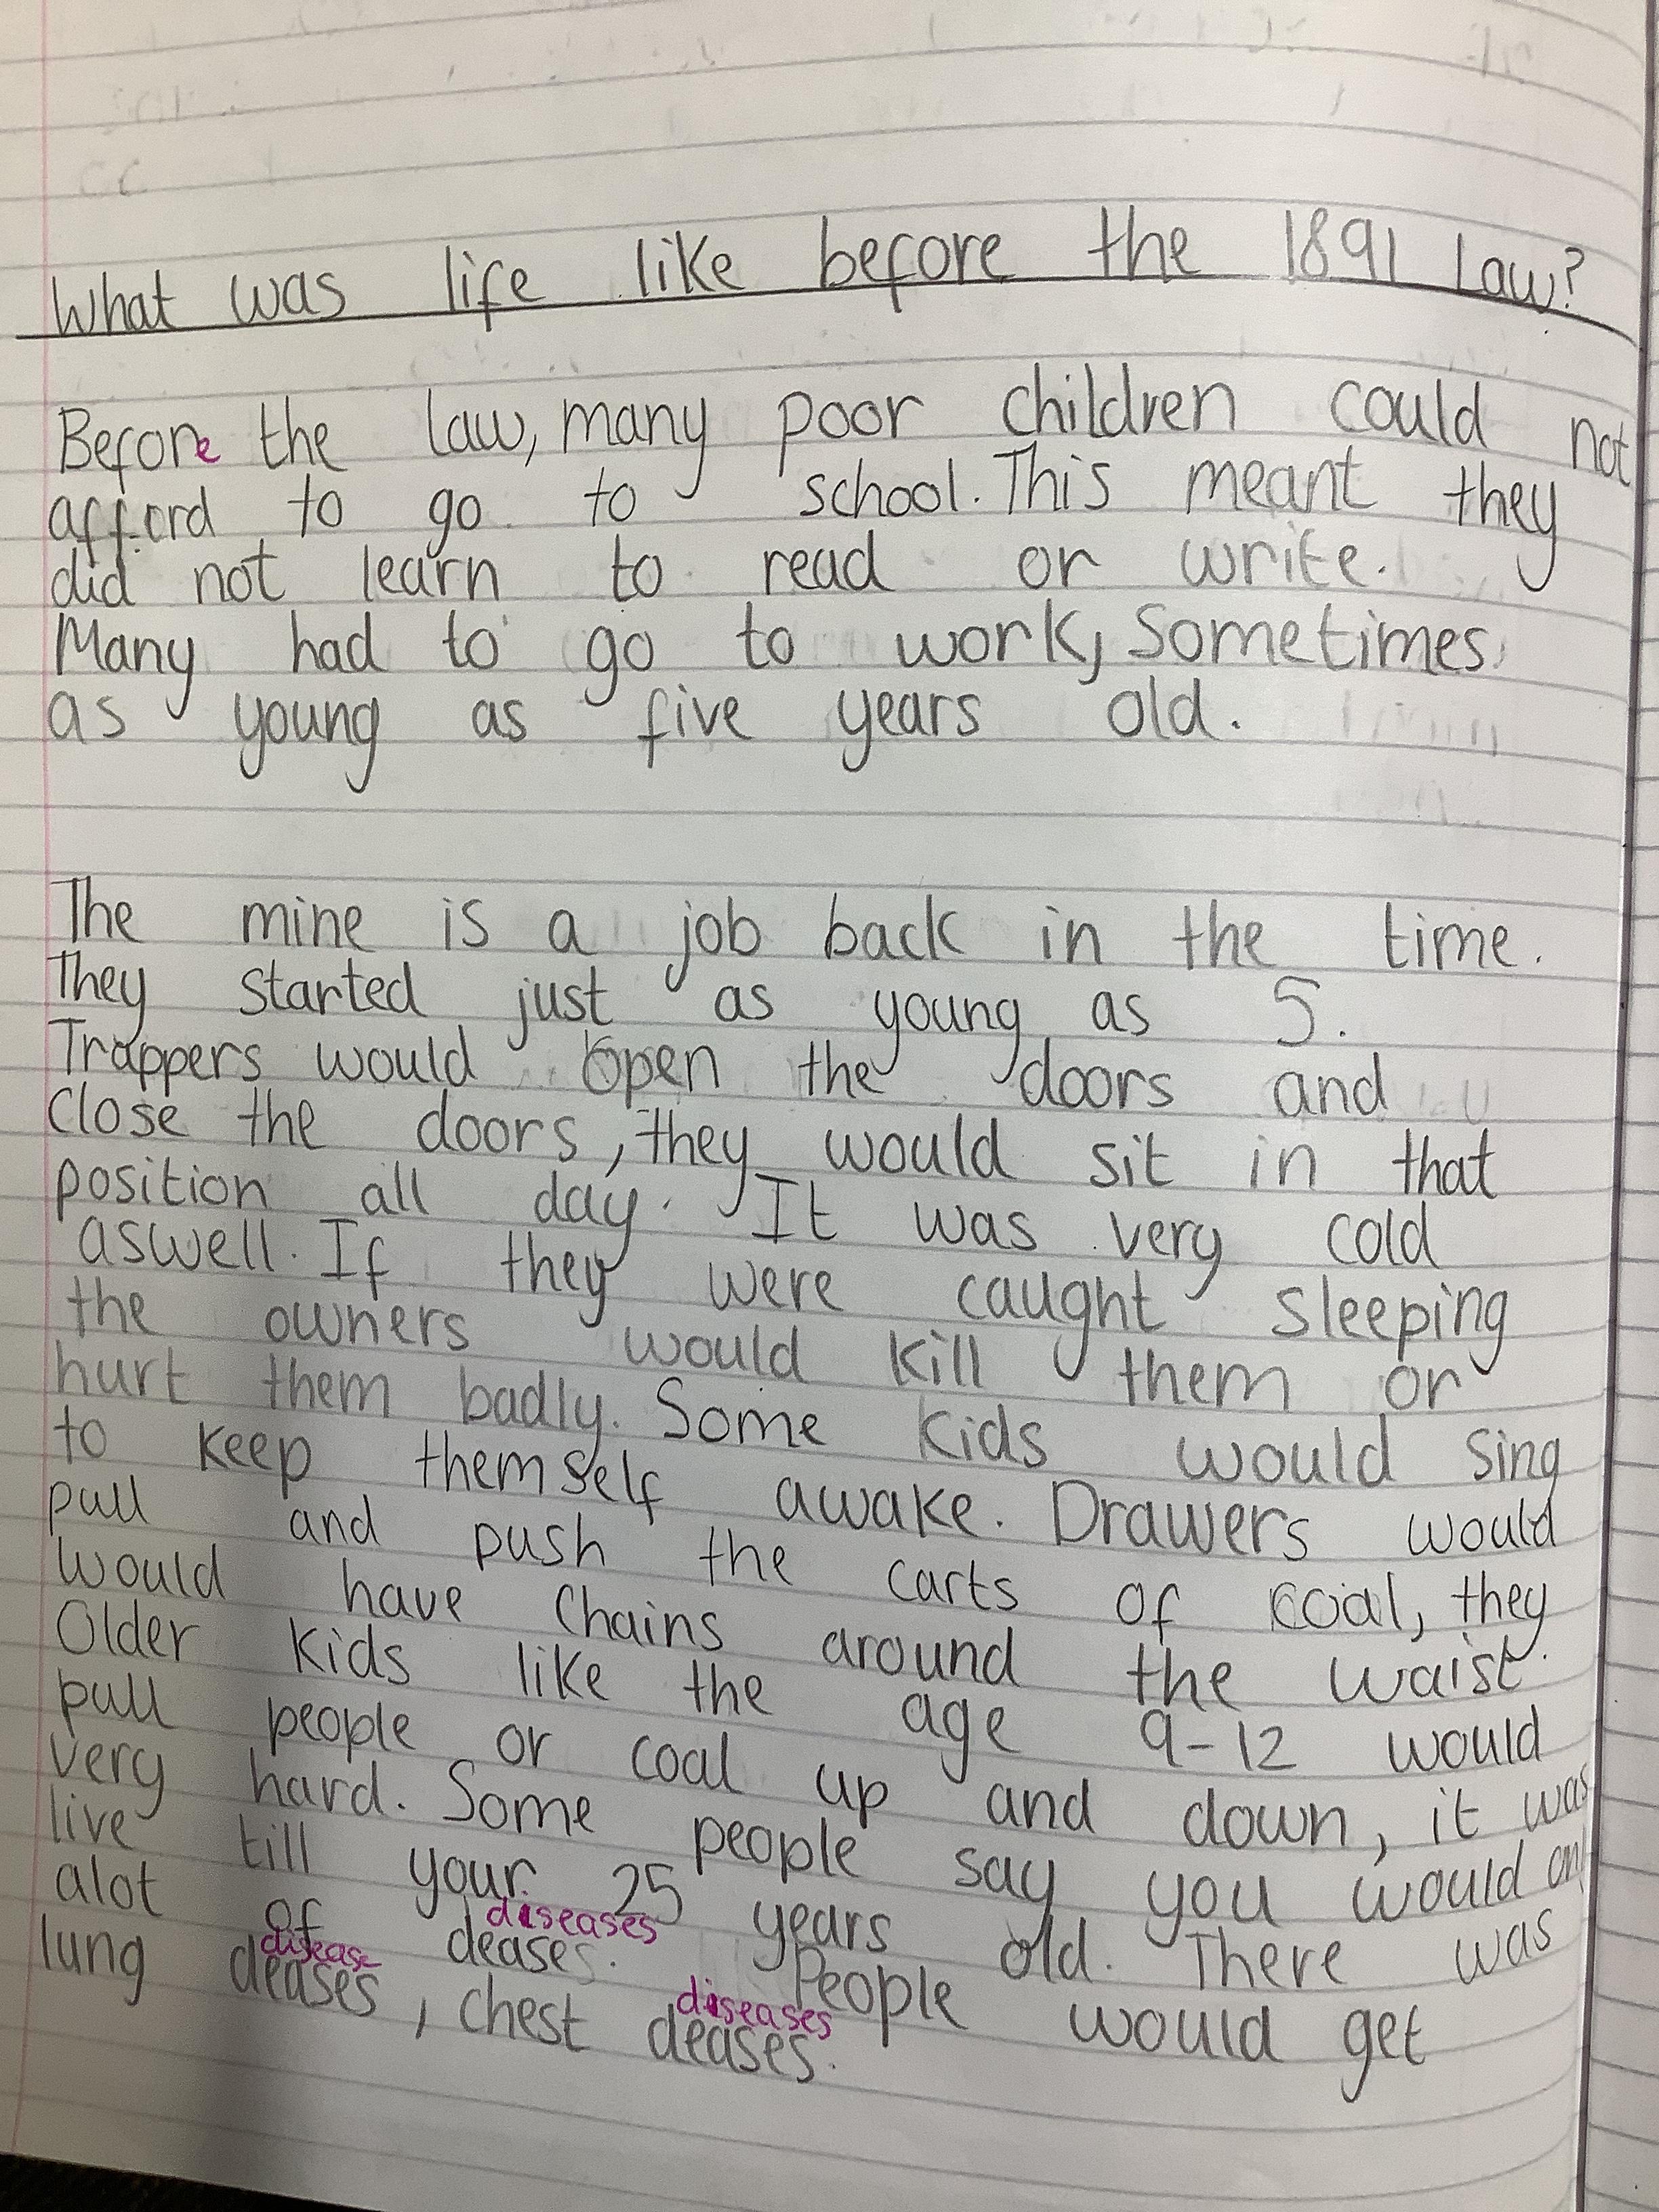 What was life like before the 1891 Law?
Before the law, many poor children could not
afford to go to school. This meant they
did not learn to read or write.
Many had to go to work, Sometimes
as young as five years old.
The mine is a job back in the time.
They started just as young as 5.
Trappers would open the doors and
close the doors, they would sit in that
position all day. It was very cold
aswell. If they were caught sleeping
the owners would kill them or
hurt them badly. Some kids would sing
to keep themself awake. Drawers would
pull and push the carts of coal, they
would have chains around the waist.
Older kids like the age 9-12 would
pull people or coal up and down, it was
very hard. Some people say you would
live till your 25 years old. There was
diseases
alot of deases. People would get
disease diseases
lung deases, chest deases.